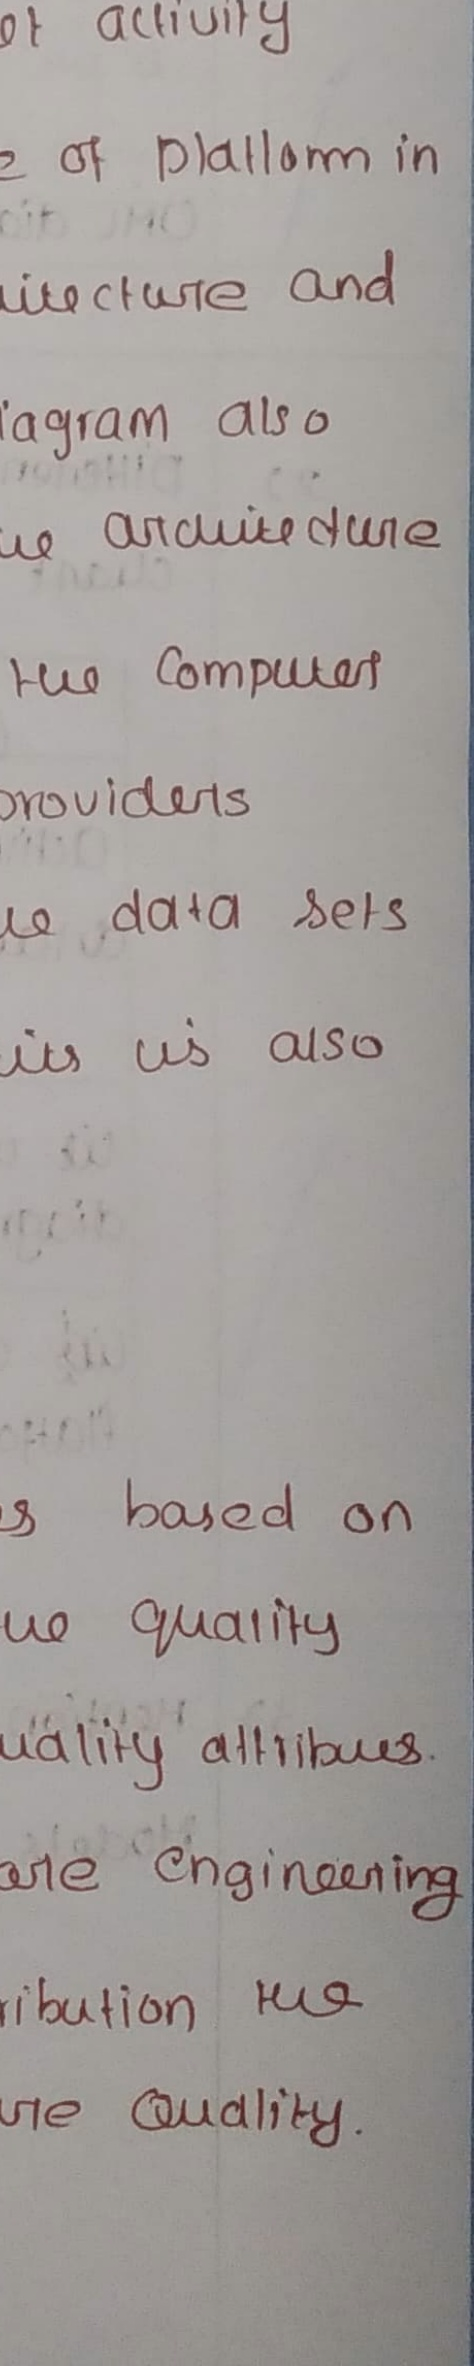 of activity
e of platform in
itecture and
iagram also
ue architecture
the Computer
providers
ue data sets
its is also
s based on
ue quality
uality attribues.
are Engineering
ribution the
are Quality.